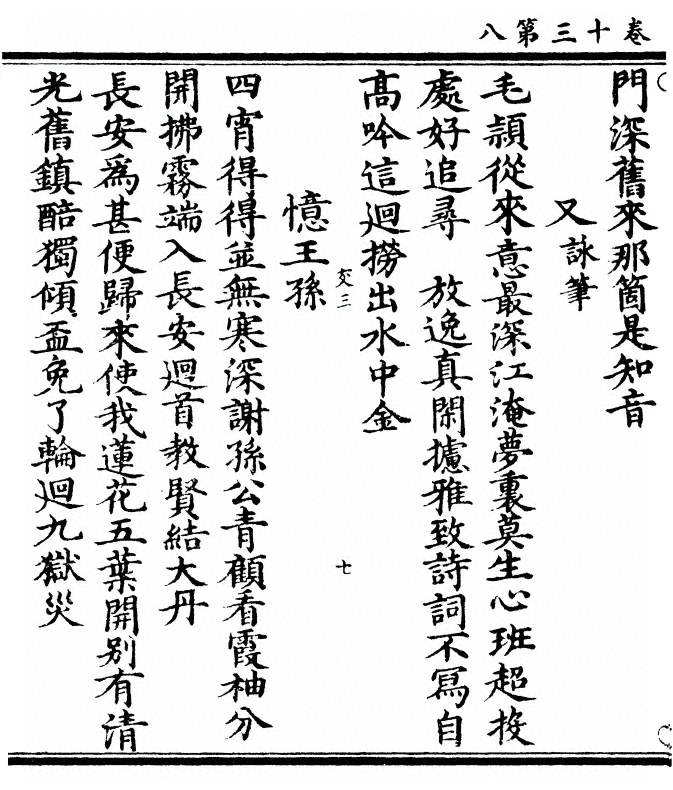 卷十三第八
門深舊來那箇是知音
又詠筆
毛頴從來意最深江淹夢裏莫生心班超投
處好追尋　放逸真閑攄雅致詩詞不寫自
高吟這迴撈出水中金
交三
七
憶王孫
四宵得得並無寒深謝孫公青顧看霞袖分
開拂霧端入長安迴首教賢結大丹
長安爲甚便歸來使我蓮花五葉開别有清
光舊鎮醅獨傾盃免了輪迴九獄災